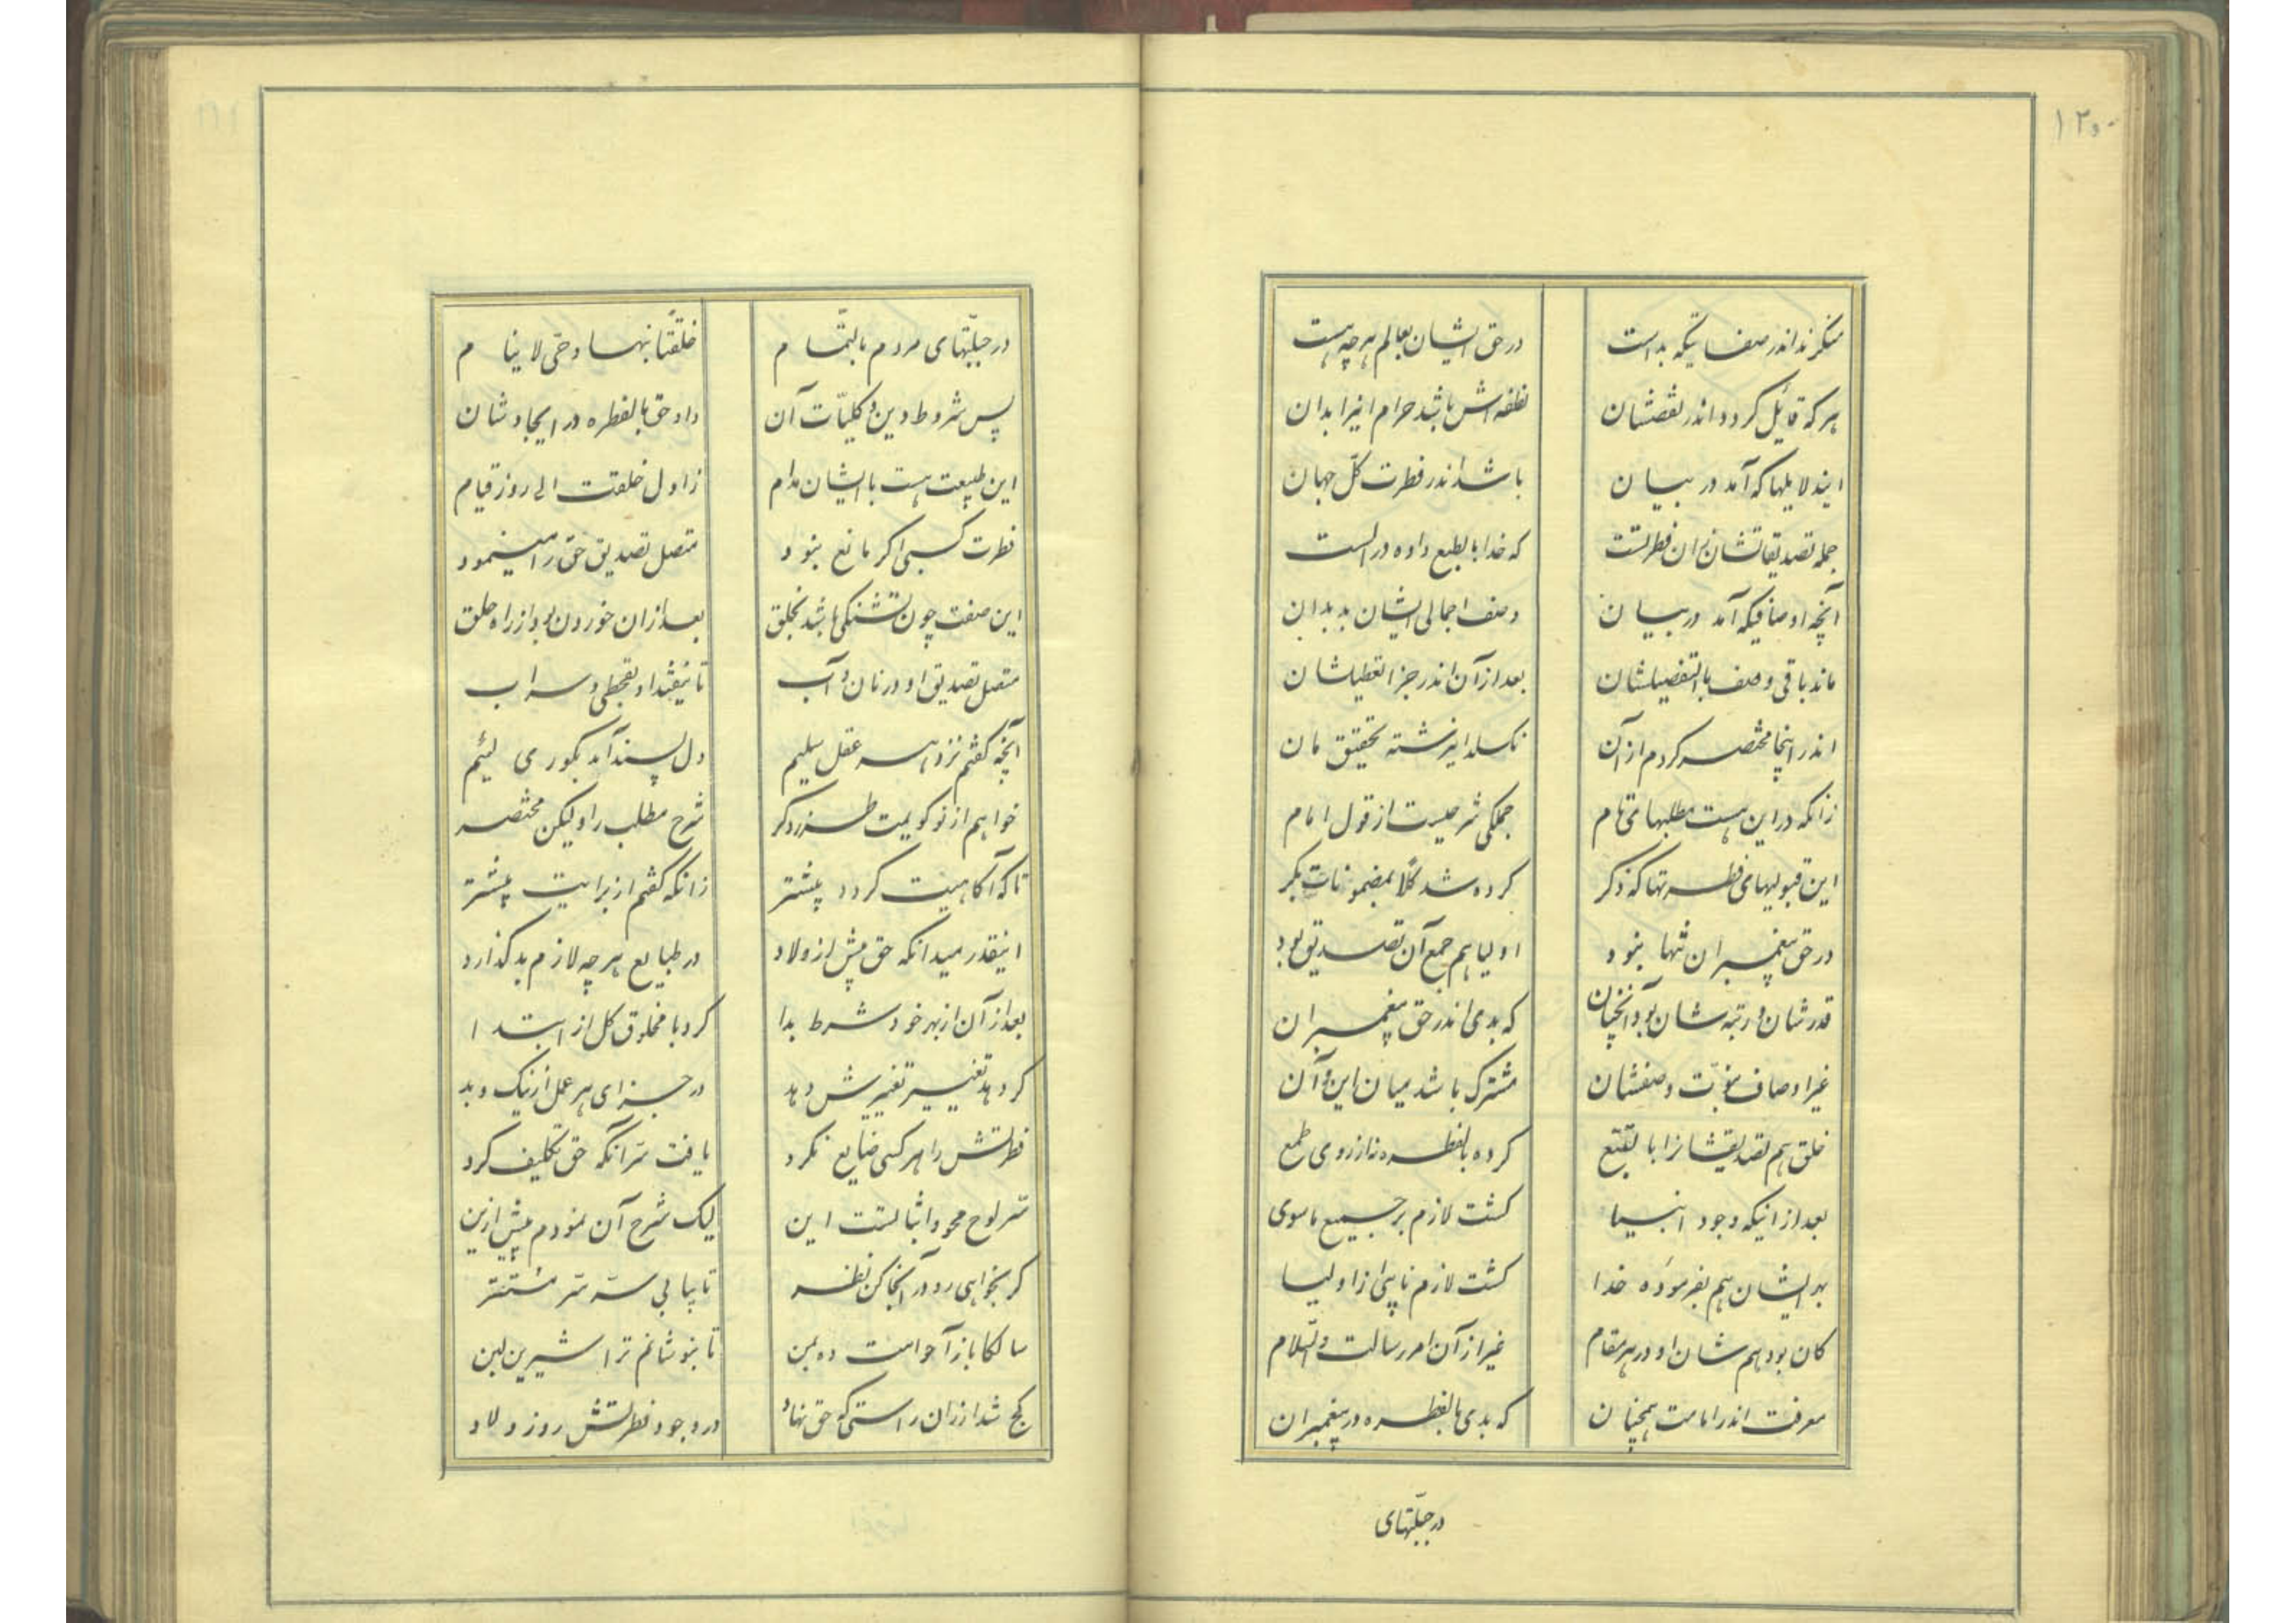 ۱۲۰
منکرند اندر صفاتیکه بد است
در حق ایشان بعالم هر چه هست
هر که قائل گردد اندر نقصشان
نطفه‌اش باشد حرام اینرا بدان
ایندلایلها که آمد در بیان
باشد اندر فطرت کل جهان
جمله تصدیقاتشان زان فطرتست
که خدا بالطبع داده در الست
آنچه اوصافیکه آمد در بیان
وصف اجمالی ایشان بد بدان
ماند باقی وصف بالتفضیلشان
بعد از آن اندر جزا تعطیلشان
اندر اینجا مختصر کردم از آن
نکسلد این رشته تحقیق مان
زانکه در این هست مطلبهای تام
جملگی شرحیست از قول امام
این قبولیهای فطرتها که ذکر
کرده شد کلا بمضمونات بکر
در حق پیغمبران تنها نبود
اولیا هم جمع آن تصدیق بود
قدرشان و رتبه شان بود آنچنان
که بدی اندر حق پیغمبران
غیر اوصاف نبوت وصفشان
مشترک باشد میان این و آن
خلق هم تصدیقشانرا بالتبع
کرده بالفطره نه از روی طمع
بعد از اینکه وجود انبیا
گشت لازم بر جمیع ماسوی
بهر ایشان هم بفرموده خدا
گشت لازم نایبی از اولیا
کان بود هم شان او در هر مقام
غیر از آن امر رسالت والسلام
معرفت اندر امامت همچنان
که بدی بالفطره در پیغمبران
در جبلتهای
در جبلتهای مردم بالتمام
خلقتا نهسا و حتی لاینام
پس شروط دین و کلیات آن
داد حق بالفطره در ایجادشان
این طبیعت هست با ایشان مدام
ز اول خلقت الی روز قیام
فطرت کسبی اگر مانع نبود
متصل تصدیق حق را مینمود
این صفت چون تشنگی باشد بخلق
بعد از آن خوردن بود از راه حلق
متصل تصدیق او در نان و آب
تا نیفتد او بقحطی و سراب
آنچه گفتم نزد هر عقل سلیم
دل پسند آمد بکوری لئیم
خواهم از نو گویمت طرز دگر
شرح مطلب را ولیکن مختصر
تا که آگاهیت گردد بیشتر
زانکه گفتم از برایت پیشتر
اینقدر میدانکه حق پیش از ولاد
در طبایع هر چه لازم بد گذارد
بعد از آن از بهر خود شرط بدا
کرد با مخلوق کل از ابتدا
گر دهد تغییر تغییرش دهد
در جزای هر عمل از نیک و بد
فطرتش را هر کسی ضایع نکرد
یافت سر آنکه حق تکلیف کرد
سر لوح محو و اثباتست این
لیک شرح آن نمودم پیش ازین
گر بخواهی رو در آنجا کن نظر
تا بیابی سر سر مستتر
سالکا باز آ حواست ده بمن
تا بنوشانم ترا شیرین لبن
کج شد ار زان راستی که حق نهاد
در وجود فطرتش روز ولاد